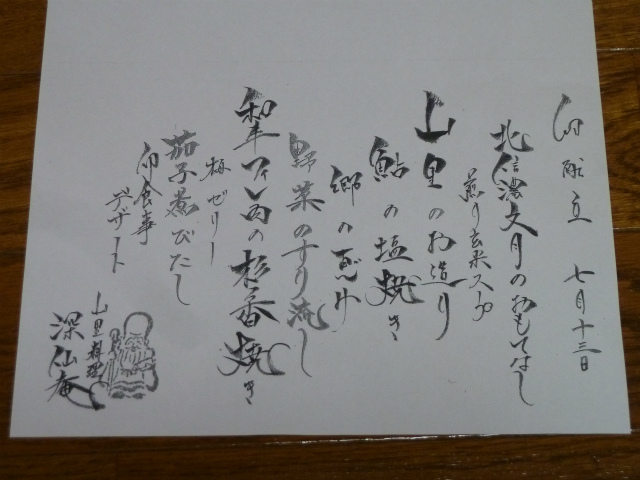 御献立 七月十三日
北信濃文月のおもてなし
煎り玄米スープ
山里のお造り
鮎の塩焼き
郷の恵み
野菜のすり流し
和牛フィレ肉の杉香焼き
梅ゼリー
茄子煮びたし
御食事
デザート
山里料理
深仙庵